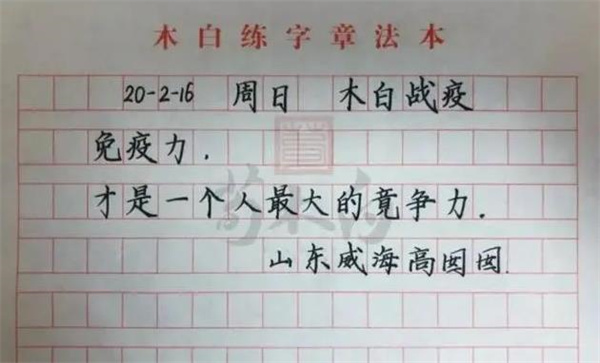 木白练字章法本
20-2-16 周日 木白战疫
免疫力.
才是一个人最大的竟争力.
山东威海高囡囡.